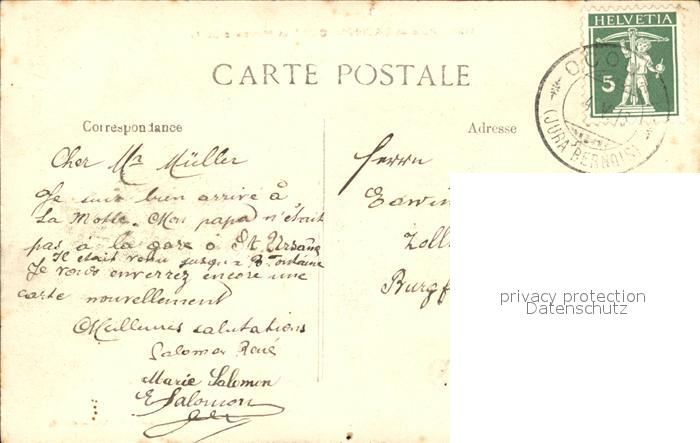 HELVETIA
5
OCO
(JURA BERNOIS)
CARTE POSTALE
Correspondance
Adresse
Cher Mr Müller
Je suis bien arrivé à
La Motte. Mon papa n'était
pas à la gare à St. Ursanne
Il était venu jusqu'à
Je vous enverrez encore une
carte nouvellement
Meilleures salutations
Salomon René
Marie Salomon
E Salomon
Herrn
Edwin
Zoll
Burgf
privacy protection
Datenschutz